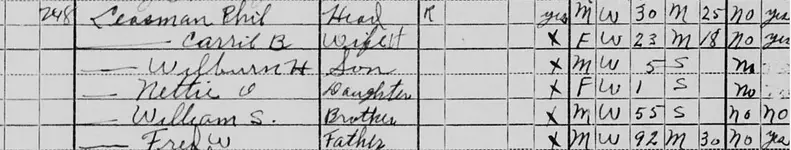 248 Leasman Phil Head R yes M W 30 M 25 No yes
— Carril B Wife H X F W 23 M 18 No yes
— Wilburn H Son X M W 5 S No
— Nettie O Daughter X F W 1 S No
— William S. Brother X M W 55 S No No
— Fred W Father X M W 92 M 30 No yes